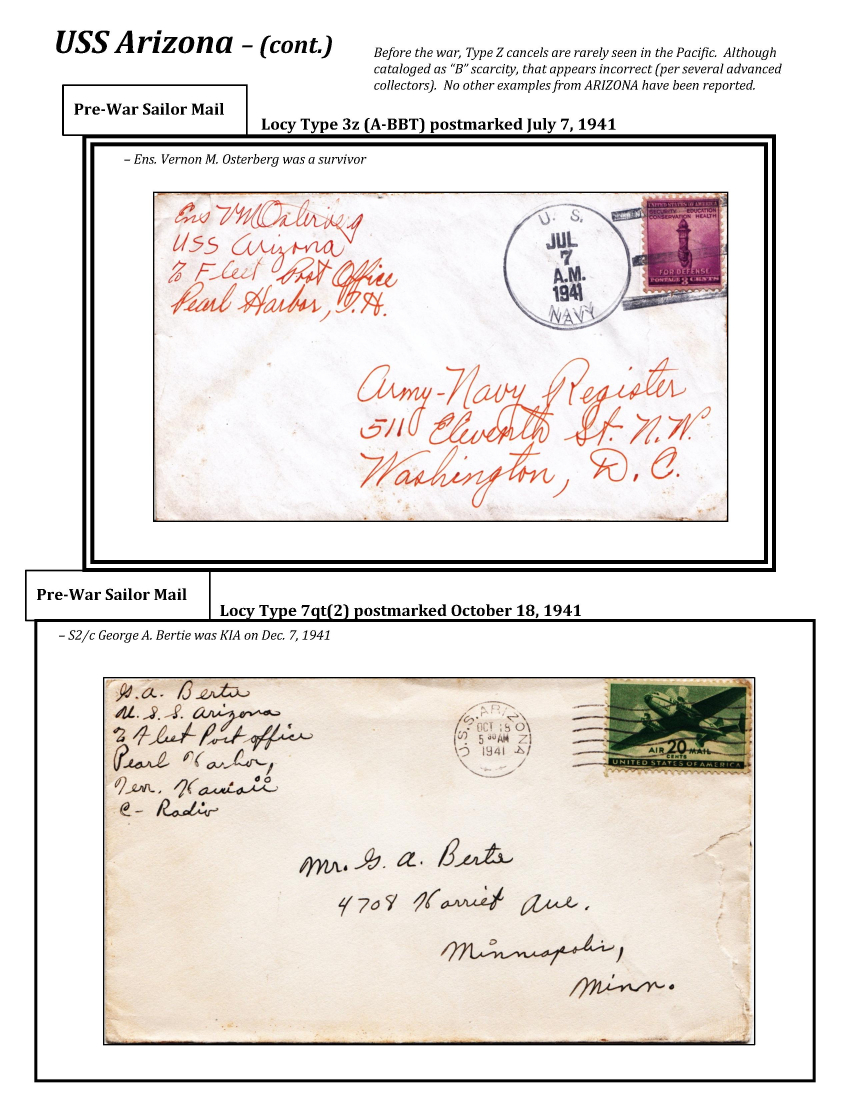 USS Arizona – (cont.)
Before the war, Type Z cancels are rarely seen in the Pacific. Although
cataloged as “B” scarcity, that appears incorrect (per several advanced
collectors). No other examples from ARIZONA have been reported.
Pre-War Sailor Mail
Locy Type 3z (A-BBT) postmarked July 7, 1941
– Ens. Vernon M. Osterberg was a survivor
Ens VM Osterberg
USS Arizona
℅ Fleet Post Office
Pearl Harbor, T.H.
U. S.
JUL
7
A.M.
1941
NAVY
UNITED STATES OF AMERICA
SECURITY · EDUCATION
CONSERVATION · HEALTH
FOR DEFENSE
POSTAGE 3 CENTS
Army-Navy Register
511 Eleventh St. N.W.
Washington, D.C.
Pre-War Sailor Mail
Locy Type 7qt(2) postmarked October 18, 1941
– S2/c George A. Bertie was KIA on Dec. 7, 1941
G. A. Bertie
U. S. S. Arizona
℅ Fleet Post office
Pearl Harbor,
Terr. Hawaii
C- Radio
U.S.S. ARIZONA
OCT 18
5 30 AM
1941
AIR 20 MAIL
CENTS
UNITED STATES OF AMERICA
Mr. G. A. Bertie
4708 Harriet Ave.
Minneapolis,
Minn.